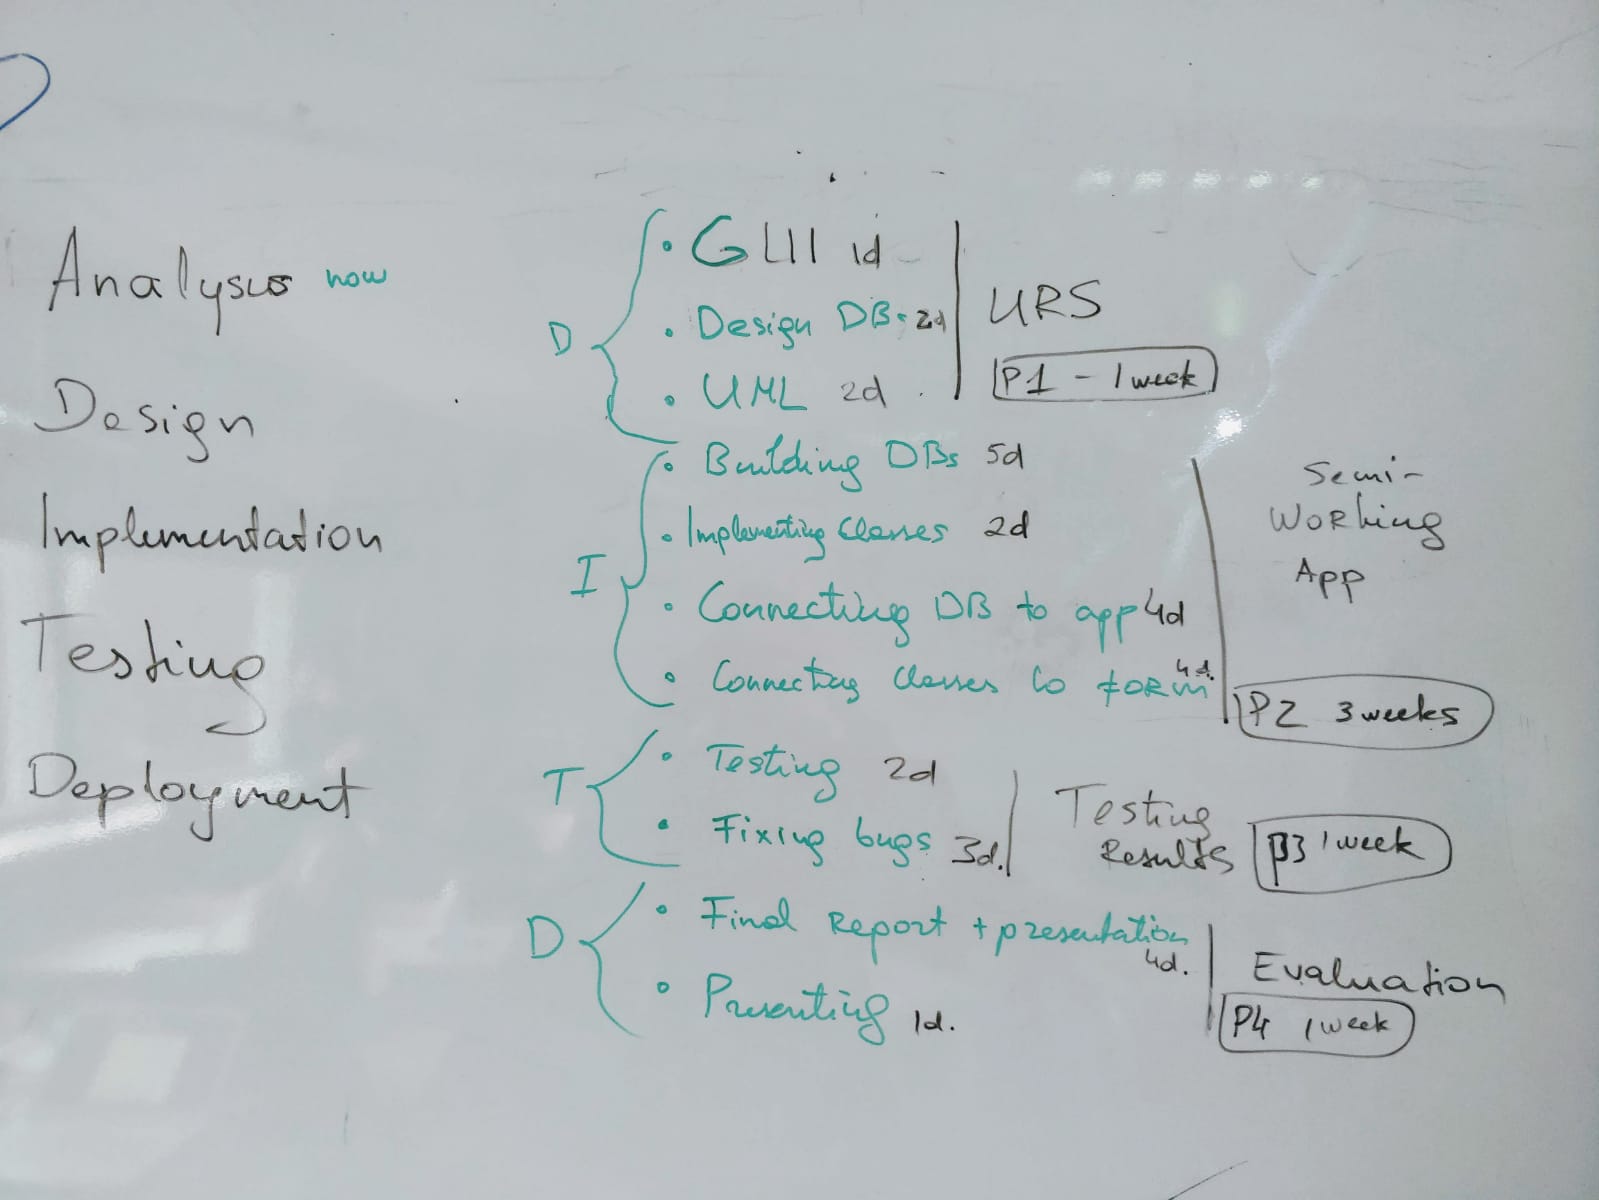 Analysis now
Design
Implementation
Testing
Deployment
D
• GUI 1d
• Design DB. 2d
• UML 2d
URS
P1 - 1 week
I
• Building DBs 5d
• Implementing Classes 2d
• Connecting DB to app 4d
• Connecting Classes to form 4d.
Semi-
Working
App
P2 3 weeks
T
• Testing 2d
• Fixing bugs 3d.
Testing
Results
P3 1 week
D
• Final Report + presentation
4d.
• Presenting 1d.
Evaluation
P4 1 week